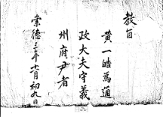 教旨
黃一皓爲通
政大夫守義
州府尹者
崇德三年七月初九日